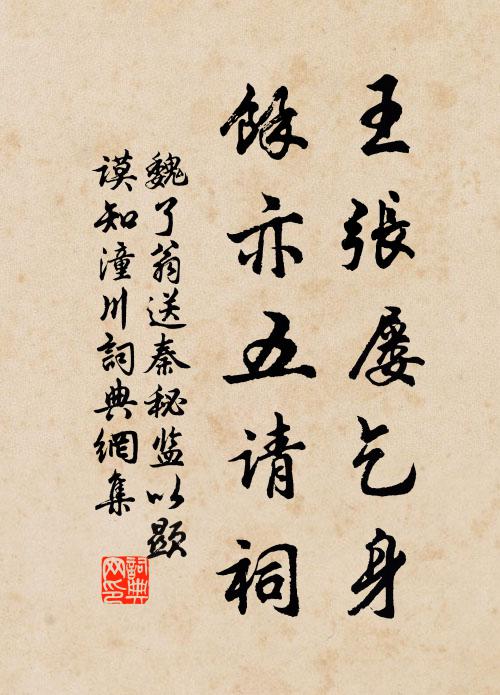 王張屡乞身
餘亦五请祠
魏了翁送秦秘监以顯
谟知潼川詞典網集
詞典网印